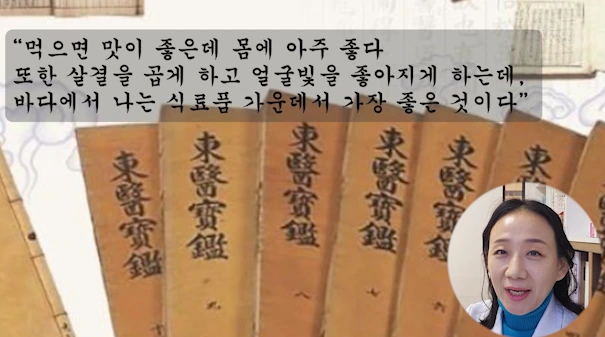 “먹으면 맛이 좋은데 몸에 아주 좋다
또한 살결을 곱게 하고 얼굴빛을 좋아지게 하는데,
바다에서 나는 식료품 가운데서 가장 좋은 것이다”
東醫寶鑑
東醫寶鑑
九
東醫寶鑑
八
東醫寶鑑
七
東醫寶鑑
六
東醫寶
東醫